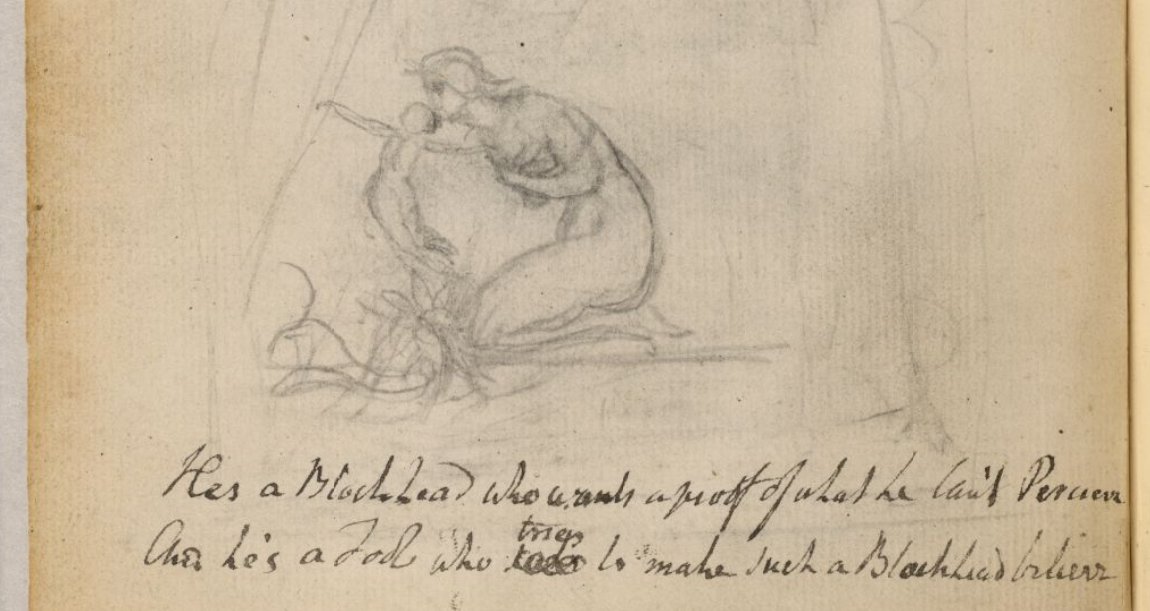 Hes a Blockhead who wants a proof of what he Can't Percieve
And he's a Fool who tries to make such a Blockhead believe